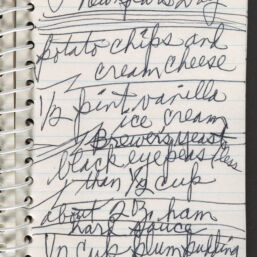 New Years Day
potato chips and
cream cheese
1/2 pint vanilla
ice cream
Brewers yeast
black eye peas (less
than 1/2 cup
about 2 B ham
hard sauce
cup plum pudding